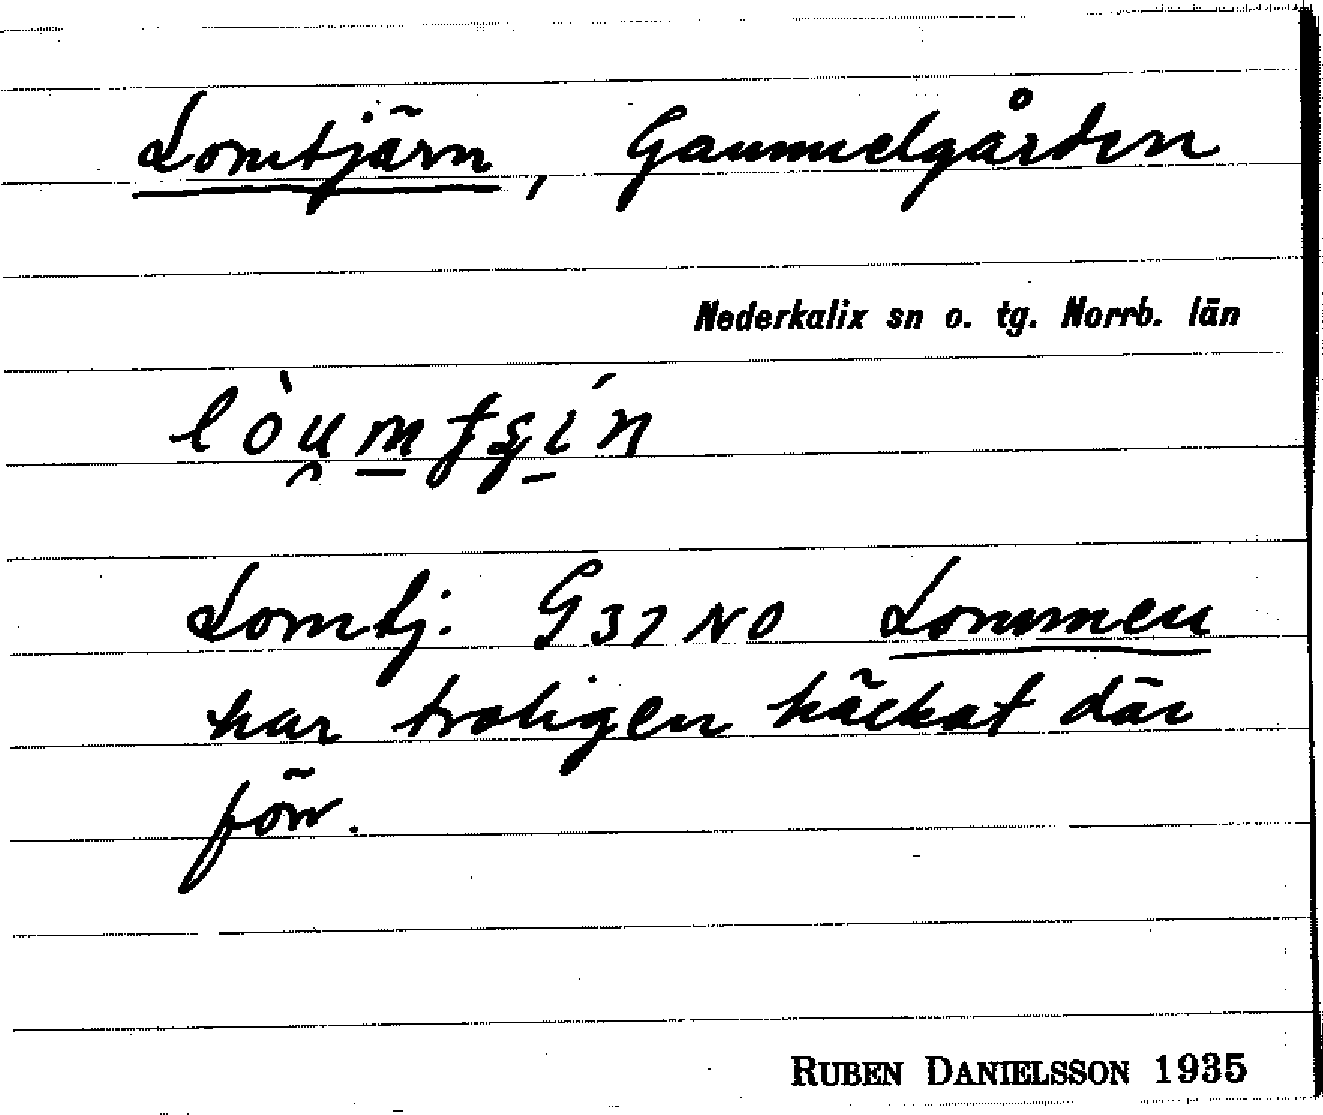 Lomtjärn, Gammelgården
Nederkalix sn o. tg. Norrb. län
Lomtj. G37NO Lommen
har troligen häckat där
förr.
RUBEN DANIELSSON 1935